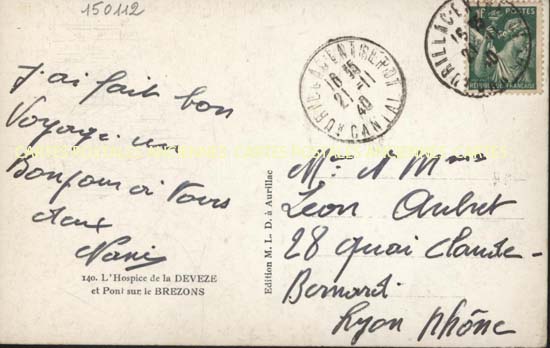 150112
J'ai fait bon
Voyage un
Bonjour à Vous
deux
140. L'Hospice de la DEVEZE
et Pont sur le BREZONS
Edition M. L. D. à Aurillac
AURILLAC ENTREPOT
18 35
2 - 11
40
CANTAL
AURILLAC
POSTES
RÉPUBLIQUE FRANÇAISE
Mr & Mme
Léon Aubret
28 quai Claude-
Bernard
Lyon Rhône